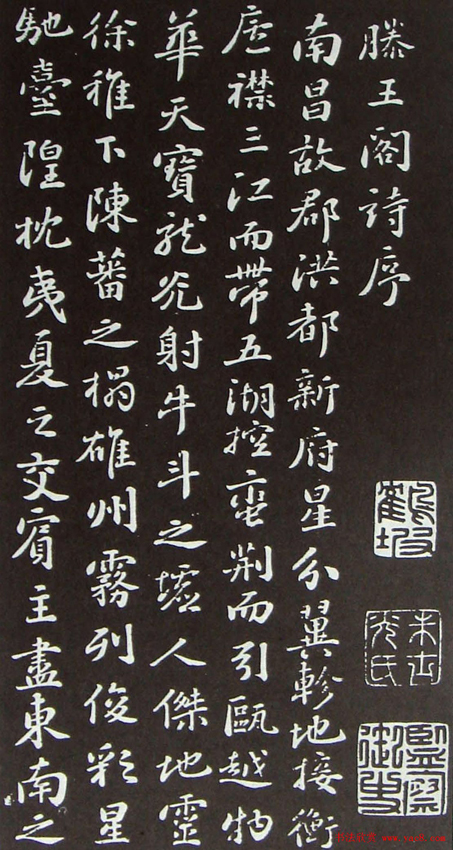 滕王閣詩序
南昌故郡洪都新府星分翼軫地接衡
廬襟三江而帶五湖控蠻荊而引甌越物
華天寶龍光射牛斗之墟人傑地靈
徐稚下陳蕃之榻雄州霧列俊彩星
馳臺隍枕夷夏之交賓主盡東南之
監察御史